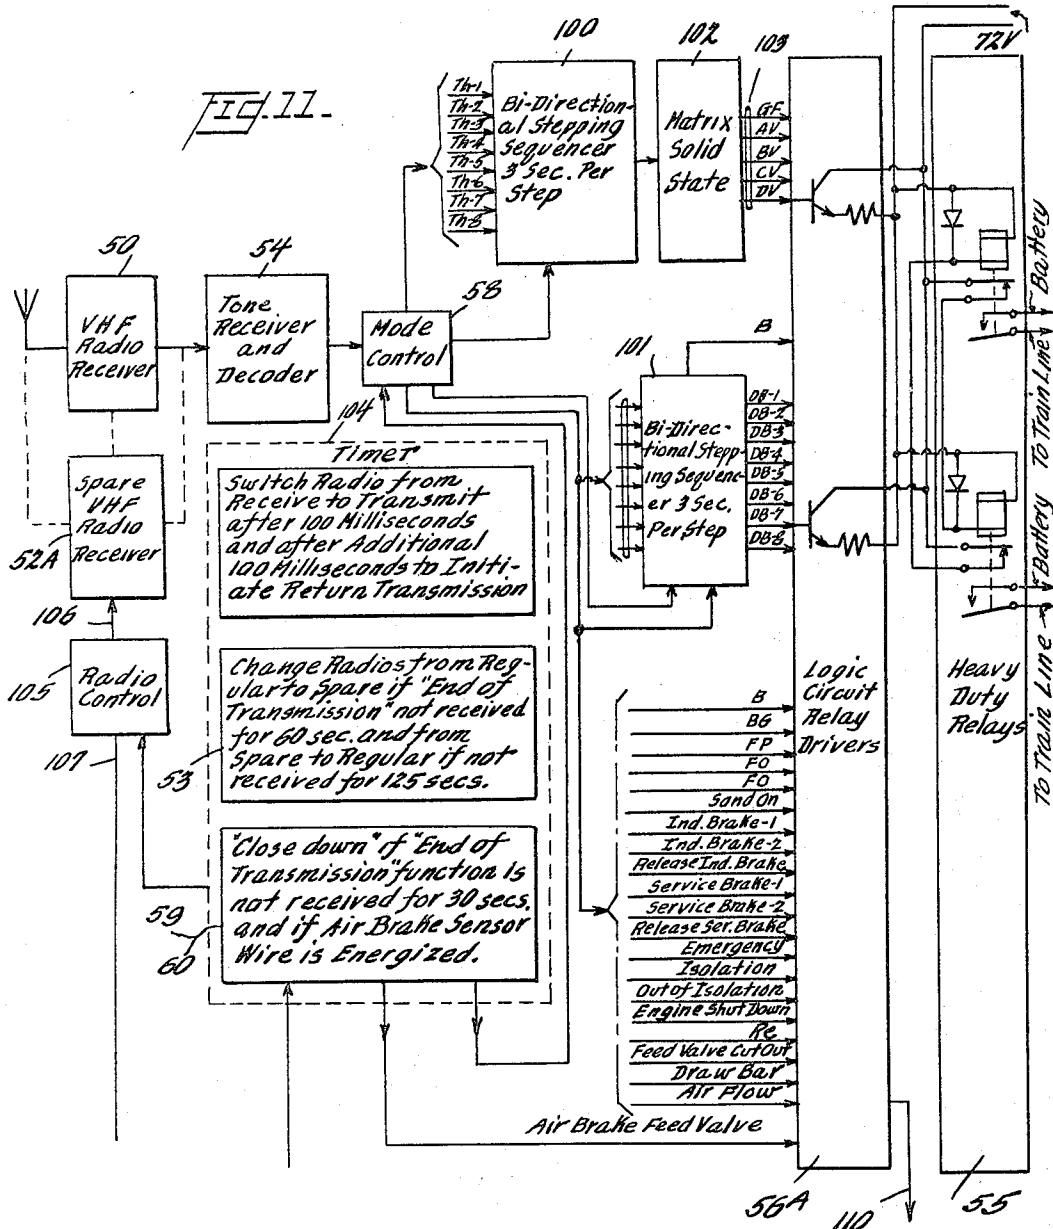 Fig. 11.
100
102
103
72V
Th-1
Th-2
Th-3
Th-4
Th-5
Th-6
Th-7
Th-8
Bi-Direction-
al Stepping
Sequencer
3 Sec. Per
Step
Matrix
Solid
State
GF
AV
BV
CV
DV
50
VHF
Radio
Receiver
54
Tone
Receiver
and
Decoder
58
Mode
Control
Spare
VHF
Radio
Receiver
52A
106
105
Radio
Control
107
104
Timer
Switch Radio from
Receive to Transmit
after 100 Milliseconds
and after Additional
100 Milliseconds to Initi-
ate Return Transmission
Change Radios from Reg-
ular to Spare if "End of
Transmission" not received
for 60 sec. and from
Spare to Regular if not
received for 125 secs.
53
"Close down" if "End of
Transmission" function is
not received for 30 secs.
and if Air Brake Sensor
Wire is Energized.
59
60
101
Bi-Direc-
tional Stepp-
ing Sequenc-
er 3 Sec.
Per Step
B
DB-1
DB-2
DB-3
DB-4
DB-5
DB-6
DB-7
DB-8
B
BG
FP
FO
FO
Sand On
Ind. Brake-1
Ind. Brake-2
Release Ind. Brake
Service Brake-1
Service Brake-2
Release Ser. Brake
Emergency
Isolation
Out of Isolation
Engine Shut Down
Re
Feed Valve Cut Out
Draw Bar
Air Flow
Air Brake Feed Valve
Logic
Circuit
Relay
Drivers
Heavy
Duty
Relays
Battery
To Train Line
Battery
To Train Line
56A
110
55